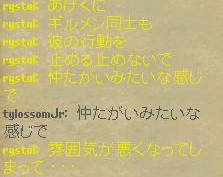 rystal: あげくに
rystal: ギルメン同士も
rystal: 彼の行動を
rystal: 止める止めないで
rystal: 仲たがいみたいな感じ
で
tylossomJr: 仲たがいみたいな
感じで
rystal: 雰囲気が悪くなってし
まって・・・